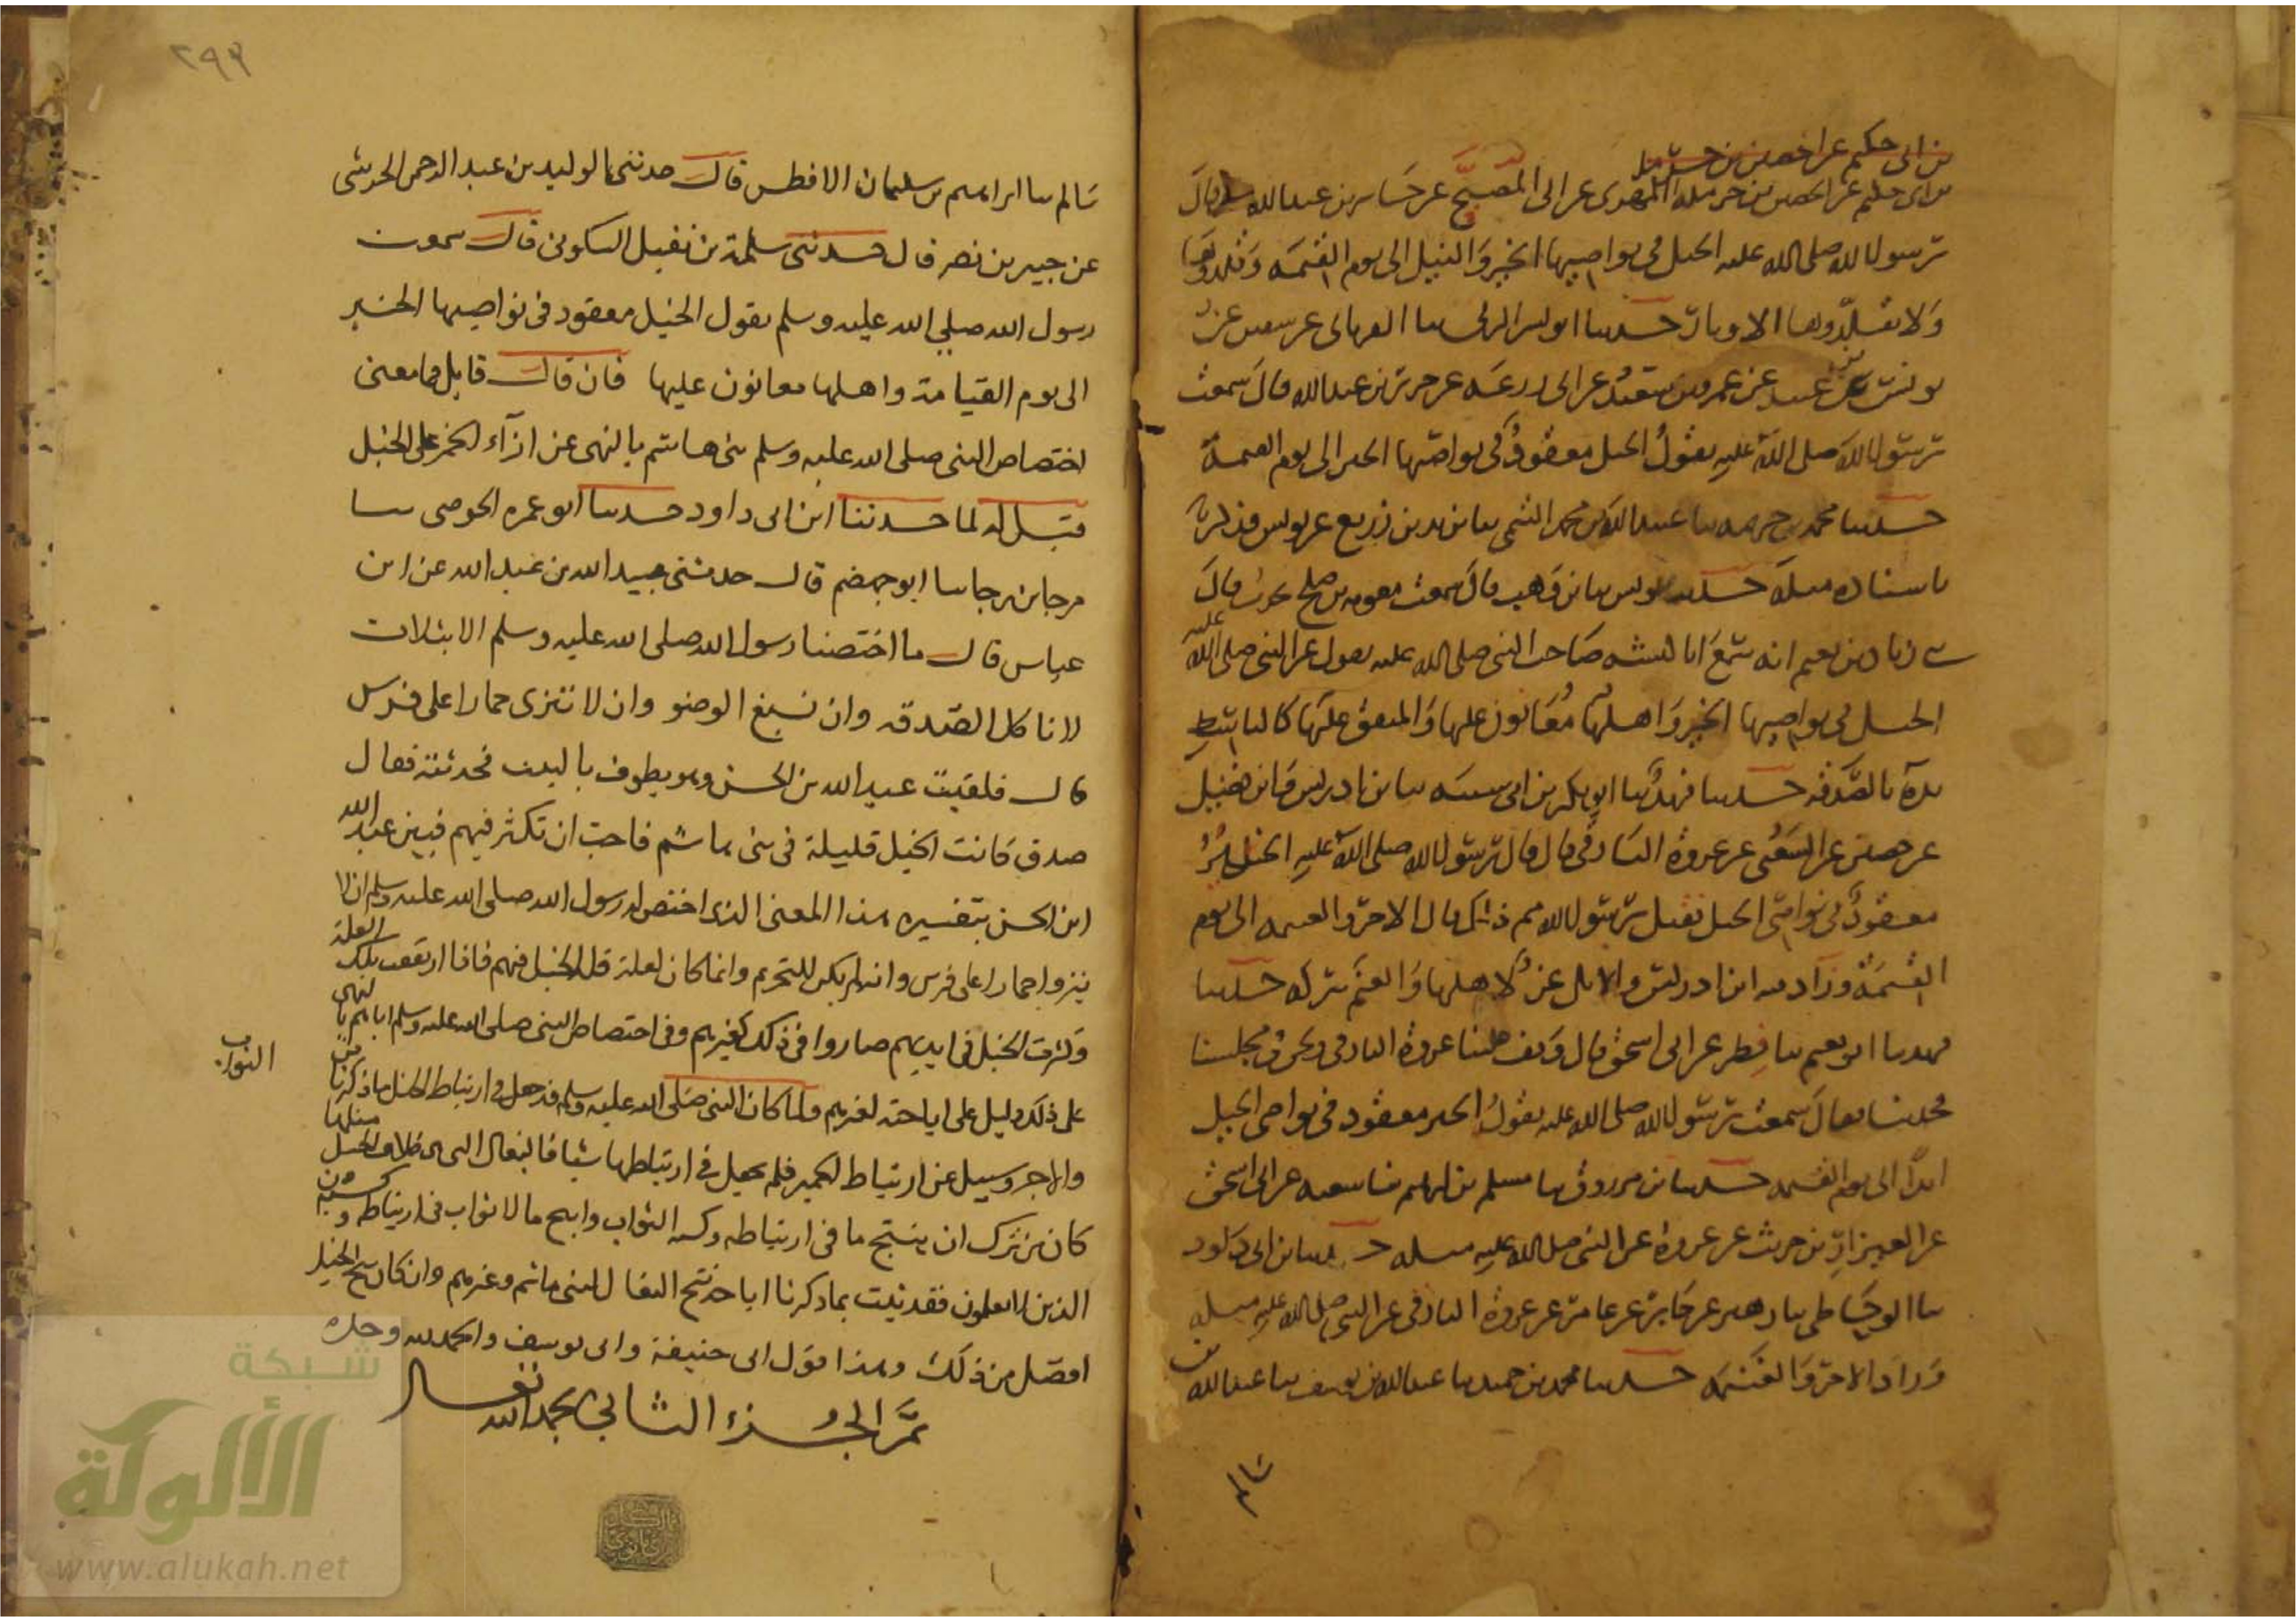 بن ابى حكيم عن الحصين بن حرملة
بن ابى حكيم عن الحصين بن حرملة المهرى عن ابى المصبح عن جابر بن عبد الله قال قال
رسول الله صلى الله عليه الخيل فى نواصيها الخير والنيل الى يوم القيمة وقلدوها
ولا تقلدوها الاوتار حدثنا ابو بشر الرقى سا الفريابى عن سفين عن
يونس بن عبيد عن عمرو بن سعيد عن ابى زرعة عن جرير بن عبد الله قال سمعت
رسول الله صلى الله عليه يقول الخيل معقود فى نواصيها الخير الى يوم القيمة
حدثنا محمد بن خزيمة سا عبيد الله بن محمد التيمى سا يزيد بن زريع عن يونس فذكر
باسناده مثله حدثنا يونس سا بن وهب قال سمعت معوية بن صلح يحدث قال
زياد بن نعيم انه سمع ابا كبشة صاحب النبى صلى الله عليه يقول عن النبى صلى الله عليه
الخيل فى نواصيها الخير واهلها معانون عليها والمنفق عليها كالباسط
يده بالصدقة حدثنا فهد سا ابو بكر بن ابى شيبة سا بن ادريس وابن فضيل
عن حصين عن الشعبى عن عروة البارقى قال قال رسول الله صلى الله عليه الخير
معقود فى نواصى الخيل فقيل يرسول الله مم ذلك قال الاجر والغنيمة الى يوم
القيمة وزاد فيه ابن ادريس والابل عز لاهلها والغنم بركة حدثنا
فهد سا ابو نعيم سا فطر عن ابى اسحق قال وقف علينا عروة البارقى ونحن فى مجلسنا
فحدثنا فقال سمعت رسول الله صلى الله عليه يقول الخير معقود فى نواصى الخيل
ابدا الى يوم القيمة حدثنا بن مرزوق سا مسلم بن ابرهيم سا شعبة عن ابى اسحق
عن العيزار بن حريث عن عروة عن النبى صلى الله عليه مثله حدثنا بن ابى داود
سا الوحاظى سا زهير عن جابر عن عامر عن عروة البارقى عن النبى صلى الله عليه مثله
وزاد الاجر والغنيمة حدثنا محمد بن حميد سا عبد الله بن يوسف سا عبد الله بن
سالم
٢٩٣
سالم سا ابراهيم بن سليمان الافطس قال حدثنى الوليد بن عبد الرحمن الجرشى
عن جبير بن نصر قال حدثنى سلمة بن نفيل السكونى قال سمعت
رسول الله صلى الله عليه وسلم يقول الخيل معقود فى نواصيها الخير
الى يوم القيامة واهلها معانون عليها فان قال قايل فما معنى
اختصاص النبى صلى الله عليه وسلم بنى هاشم بالنهى عن انزآء الحمير على الخيل
قيل له لما حدثنا ابن ابى داود حدثنا ابو عمر الحوضى سا
مرجا بن رجا سا ابو جهضم قال حدثنى عبيد الله بن عبد الله عن ابن
عباس قال ما اختصنا رسول الله صلى الله عليه وسلم الا بثلاث
لا نا كل الصدقة وان نسبغ الوضو وان لا ننزى حمارا على فرس
قال فلقيت عبد الله بن الحسن وهو يطوف بالبيت فحدثته فقال
صدق كانت الخيل قليلة فى بنى هاشم فاحب ان تكثر فيهم فبين عبد الله
ابن الحسن بتفسيره هذا المعنى الذى اختص له رسول الله صلى الله عليه وسلم ان لا
ينزوا حمارا على فرس وانه لم يكن للتحريم وانما كان لعلة قلة الخيل فيهم فاذا ارتفعت تلك العلة
وكثرت الخيل فى ايديهم صاروا فى ذلك كغيرهم وفى اختصاص النبى صلى الله عليه وسلم اياهم بالنهى
عن ذلك دليل على اباحته لغيرهم ولما كان النبى صلى الله عليه وسلم قد جعل فى ارتباط الخيل ما ذكرنا من
الثواب
والاجر وسيل عن ارتباط الحمير فلم يجعل فى ارتباطها شيا فالبغال التى هى خلاف الخيل مثلها
كان من ترك ان ينتج ما فى ارتباطه وكسبه الثواب وانتج ما لا ثواب فى ارتباطه وكسبه من
الذين لا يعلمون فقد ثبت بما ذكرنا اباحة نتج البغال لبنى هاشم وغيرهم وان كان نتج الخيل
افضل من ذلك وهذا قول ابى حنيفة وابى يوسف والحمد لله وحده
تم الجزء الثانى بحمد الله تعالى
شبكة
الألوكة
www.alukah.net